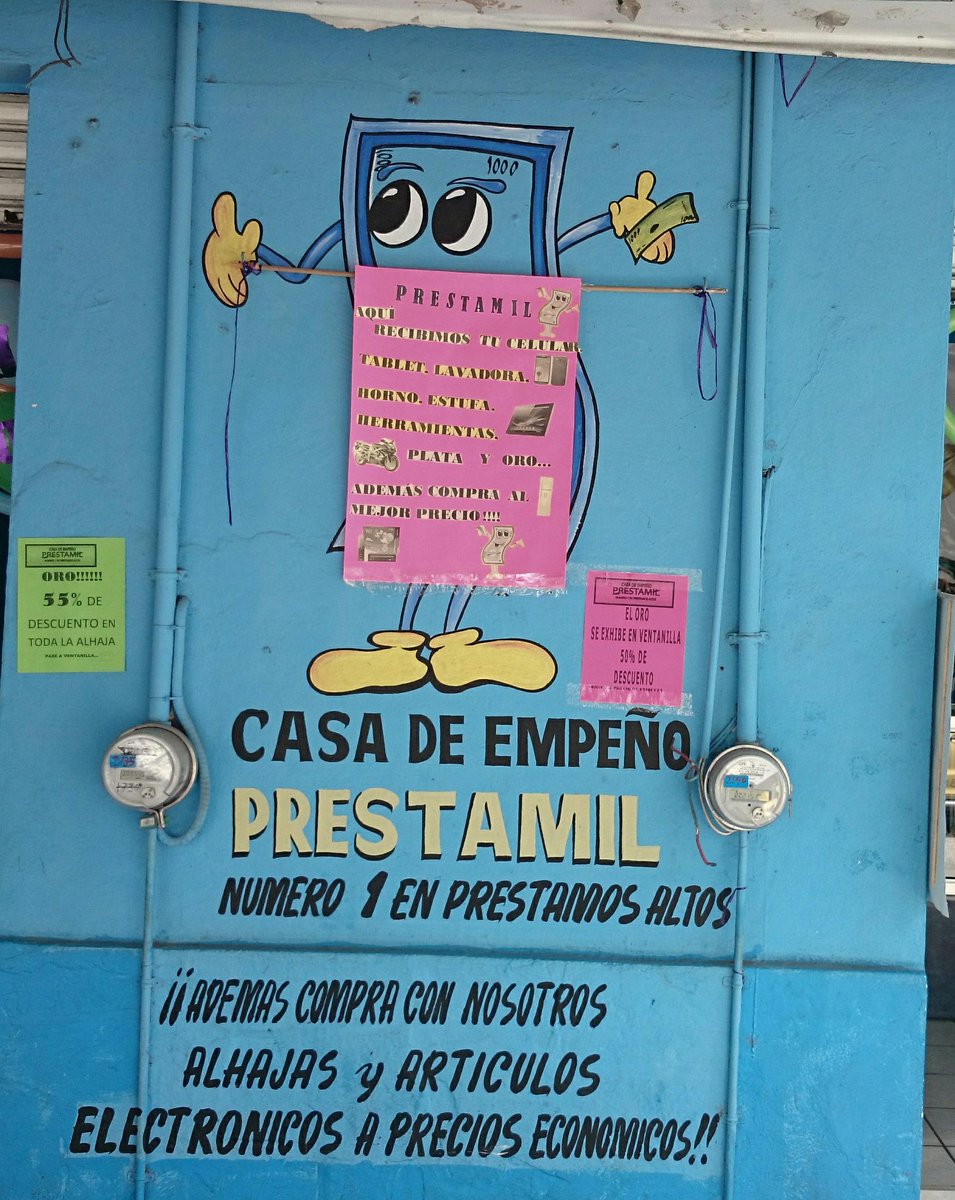 1000
1000
1000
1000
PRESTAMIL
AQUÍ
RECIBIMOS TU CELULAR,
TABLET, LAVADORA,
HORNO, ESTUFA,
HERRAMIENTAS,
PLATA Y ORO...
ADEMÁS COMPRA AL
MEJOR PRECIO!!!!
CASA DE EMPEÑO
PRESTAMIL
ORO!!!!!!
55% DE
DESCUENTO EN
TODA LA ALHAJA
PASE A VENTANILLA...
CASA DE EMPEÑO
PRESTAMIL
EL ORO
SE EXHIBE EN VENTANILLA
50% DE
DESCUENTO
CASA DE EMPEÑO
PRESTAMIL
NUMERO 1 EN PRESTAMOS ALTOS
¡¡ADEMAS COMPRA CON NOSOTROS
ALHAJAS y ARTICULOS
ELECTRONICOS A PRECIOS ECONOMICOS!!